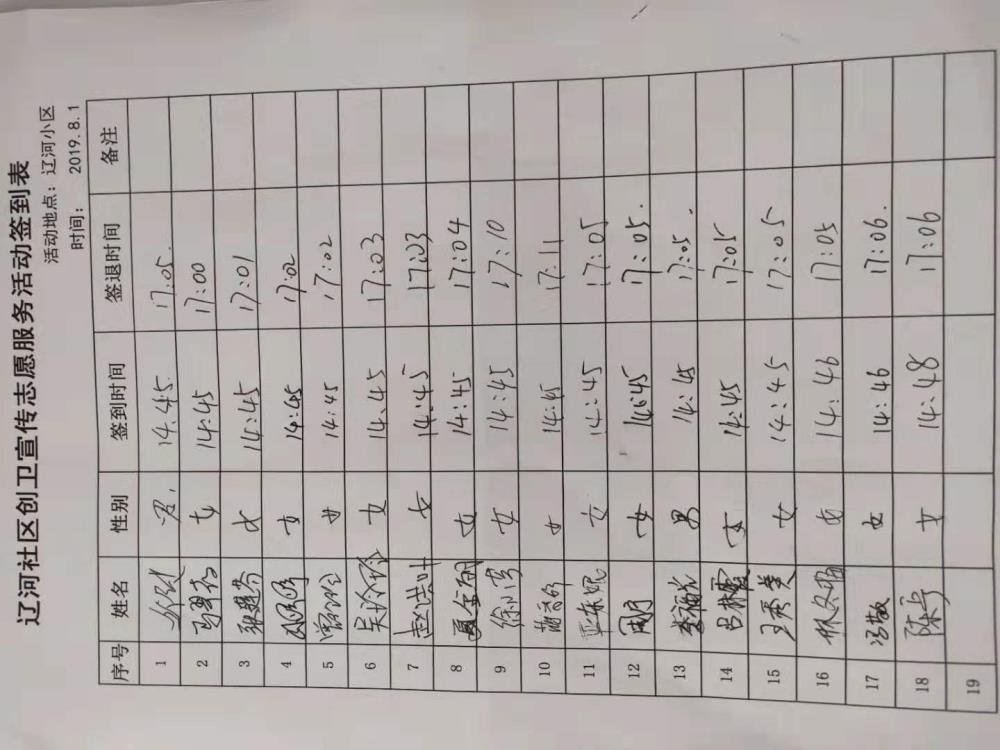 辽河社区创卫宣传志愿服务活动签到表
活动地点：辽河小区
时间： 2019.8.1
序号 姓名 性别 签到时间 签退时间 备注
1 男 14:45 17:05
2 女 14:45 17:00
3 女 14:45 17:01
4 女 14:45 17:02
5 女 14:45 17:02
6 吴玲玲 女 14:45 17:03
7 赵洪叶 女 14:45 17:03
8 女 14:45 17:04
9 徐小雪 女 14:45 17:10
10 女 14:45 17:11
11 女 14:45 17:05
12 周月 女 14:45 17:05
13 李福龙 男 14:45 17:05
14 吕林霞 女 14:45 17:05
15 王秀美 女 14:45 17:05
16 林文鹃 女 14:46 17:05
17 冯敏 女 14:46 17:06
18 陈亭 女 14:48 17:06
19